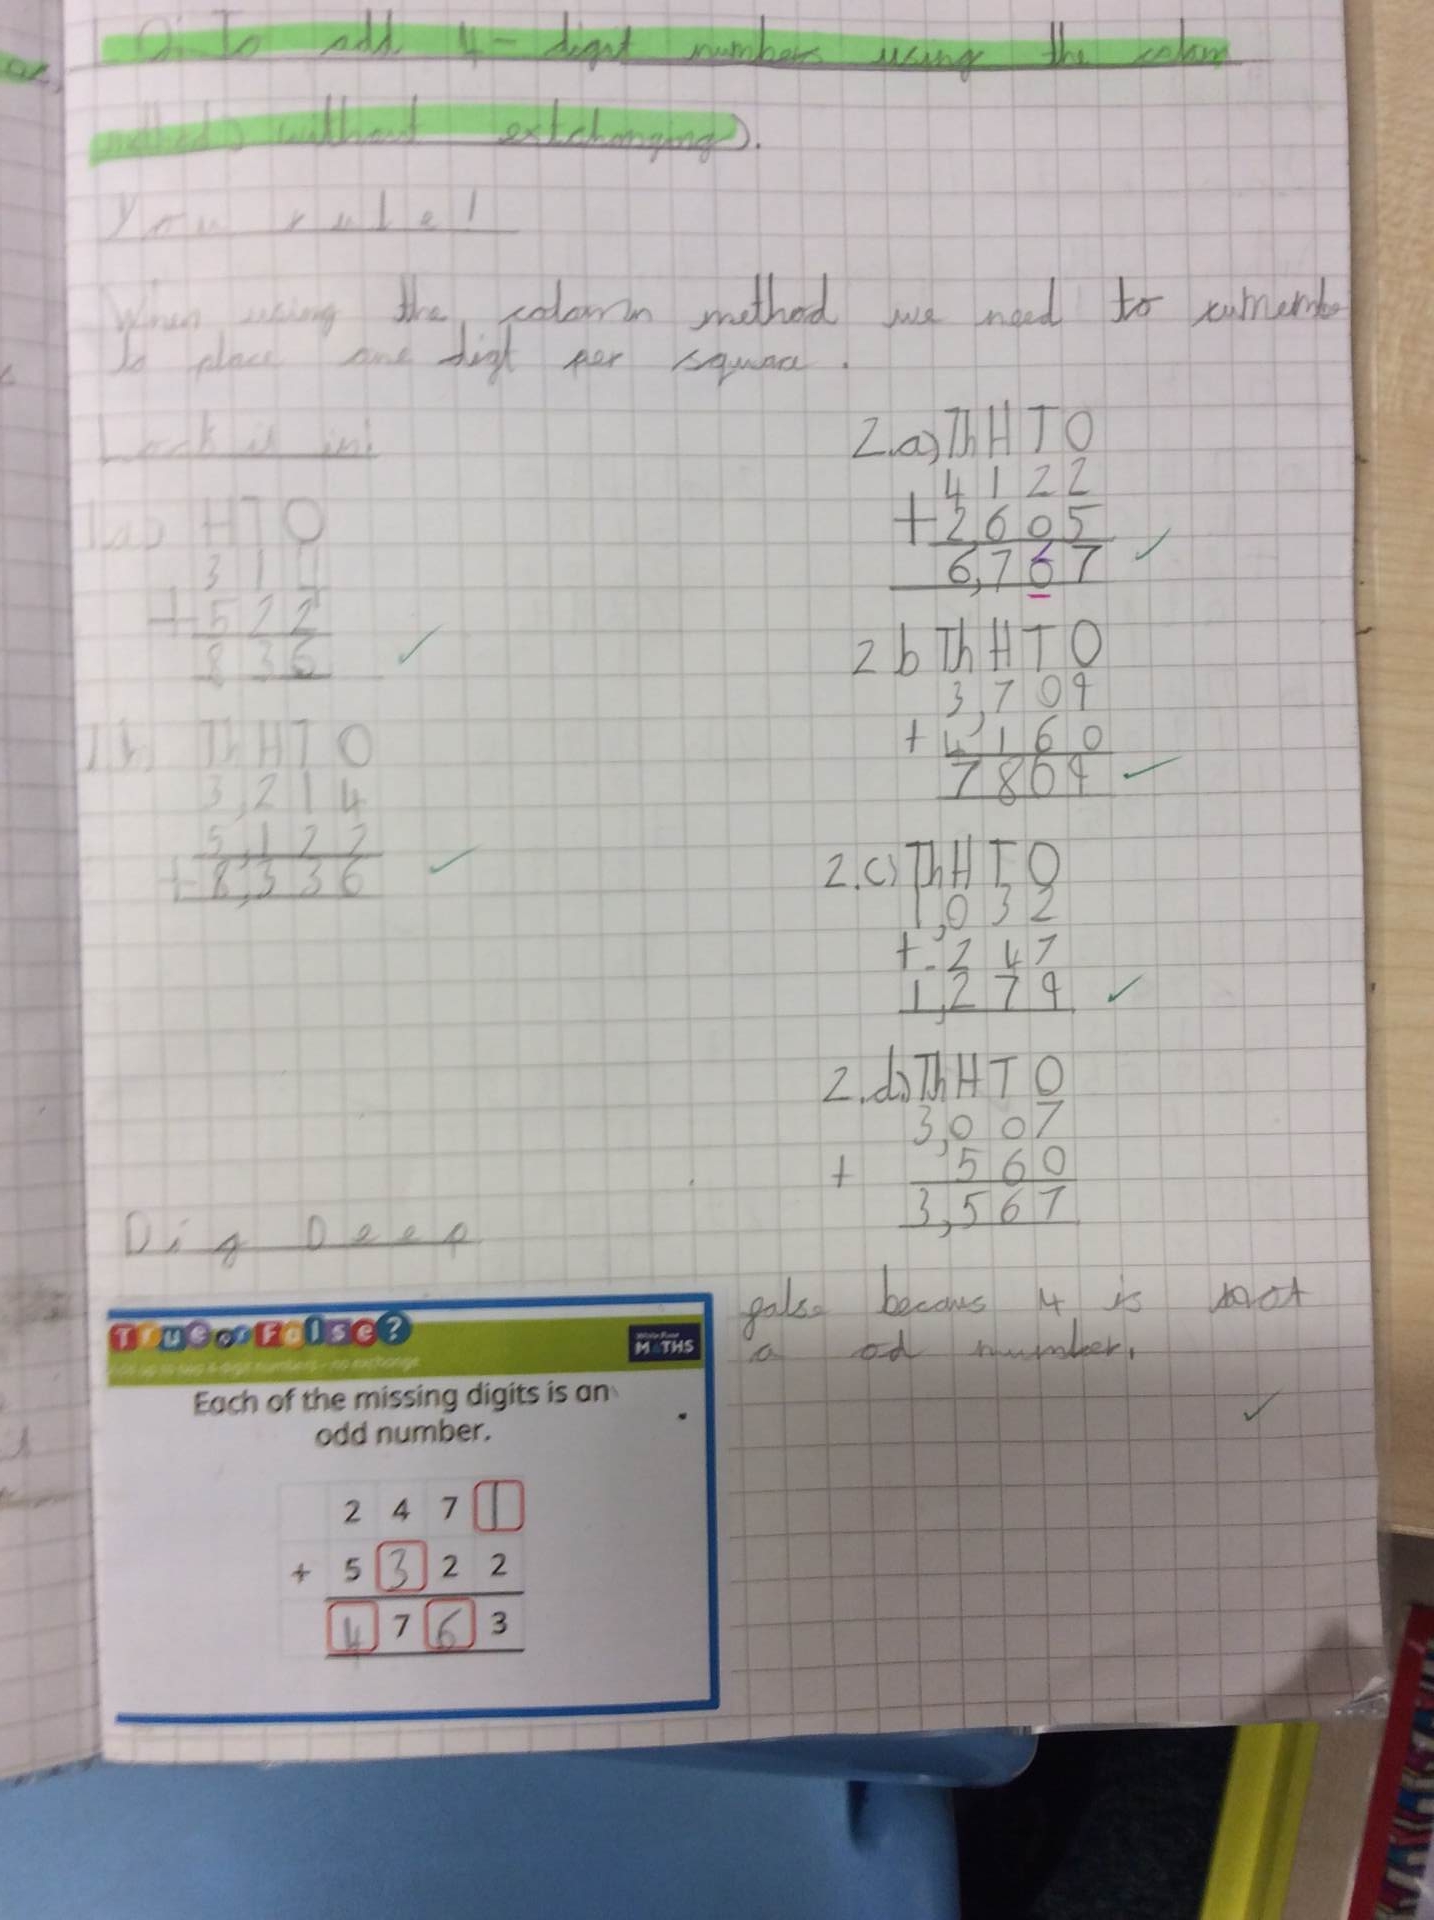 O: To add 4-digit numbers using the colum
method (without extchanging).
You rule!
When using the colomn method we need to rumembe
to place one digt per square.
Lock it in!
1a) H T O
3 1
+ 5 2 2
8 3 6
1b) Th H T O
3,2 1 4
5,1 2 2
+ 8,3 3 6
2.a) Th H T O
4 1 2 2
+ 2,6 0 5
6,7 6 7
2 b Th H T O
3,7 0 9
+ 4,1 6 0
7 8 6 9
2.c) Th H T O
1,0 3 2
+ 2 4 7
1,2 7 9
2.d) Th H T O
3,0 0 7
+ 5 6 0
3,5 6 7
Dig Deep
True or False?
MATHS
Each of the missing digits is an
odd number.
2 4 7 1
+ 5 3 2 2
4 7 6 3
false becaus 4 is not
a od number.